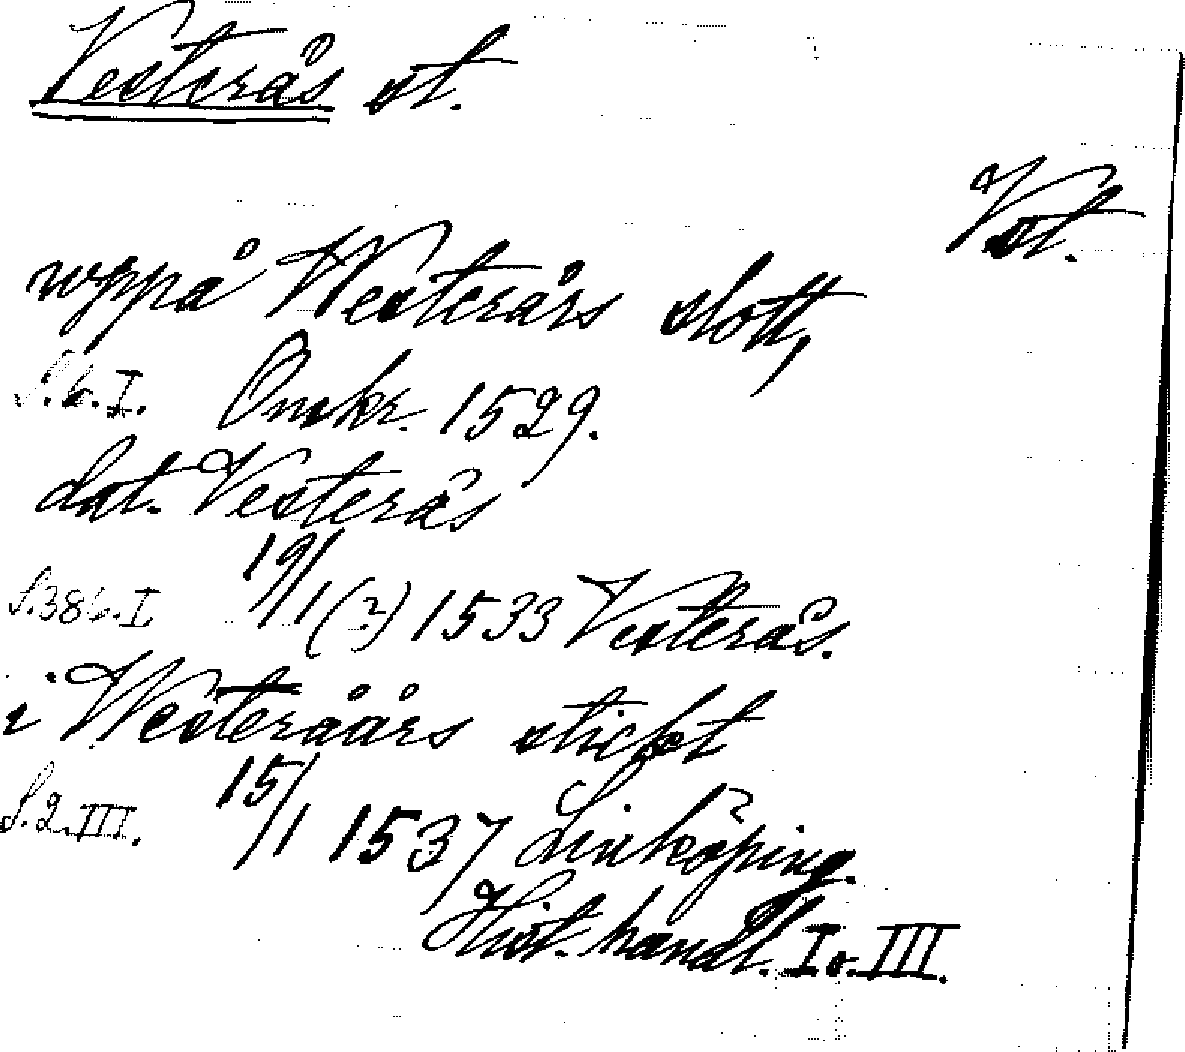 Vesterås st.
Vst.
wppå Westerårs slott,
S. 6. I. Omkr. 1529.
dat. Vesterås
S. 386. I. 19/1 (?) 1533 Vesterås.
i Westeråårs sticht
S. 2. III. 15/1 1537 Linköping.
Hist. handl. I o. III.